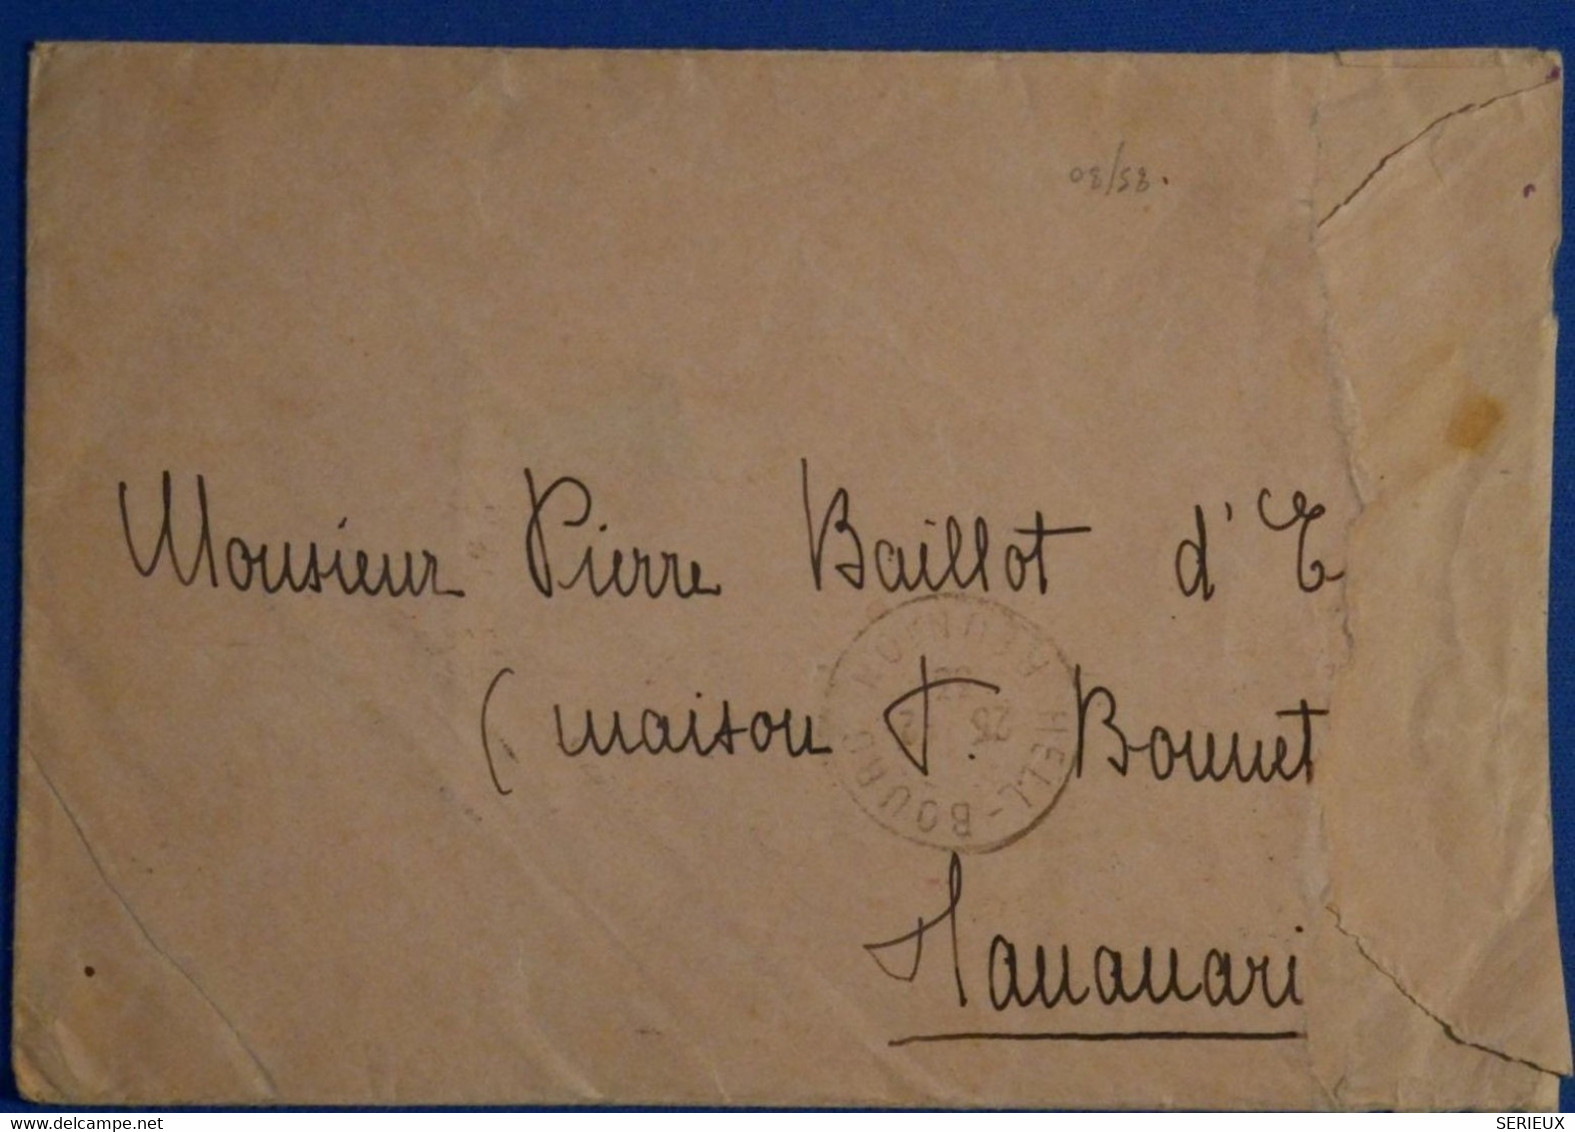 Monsieur Pierre Baillot d'E
(maison F. Bonnet
Tananari
HELL-BOURG RÉUNION
25
delcampe.net
SERIEUX